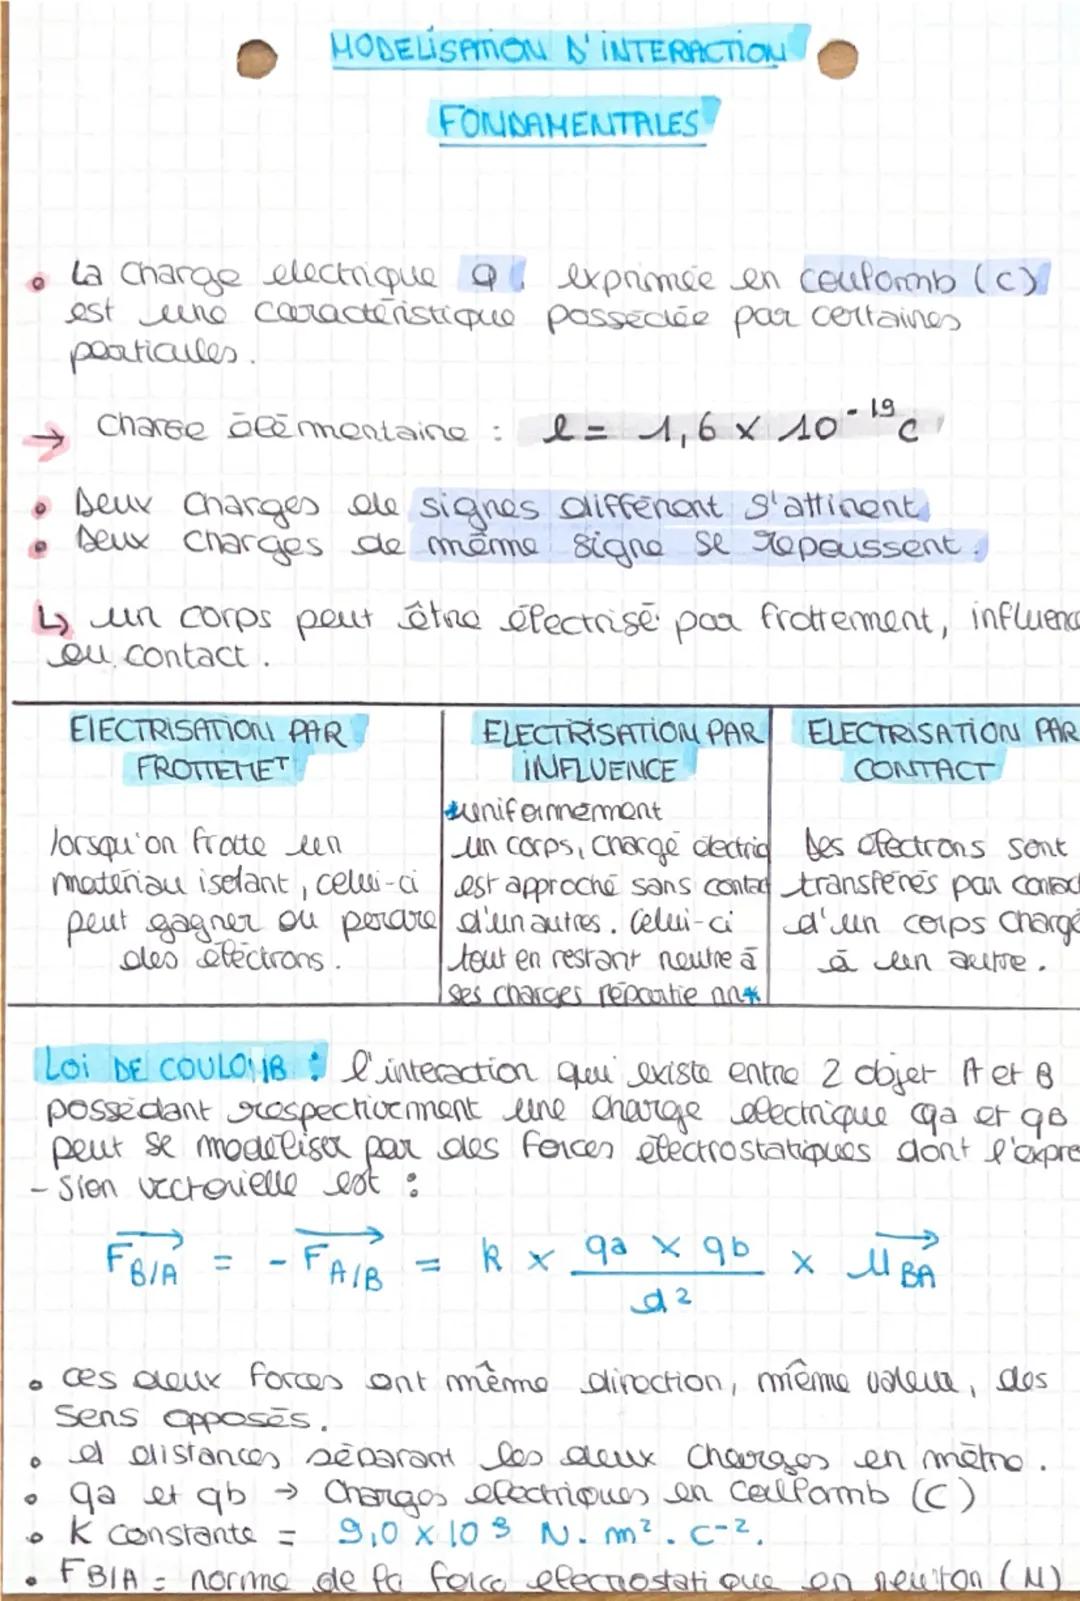 MODELISATION D'INTERACTION
FONDAMENTALES
• La Charge electrique Q exprimée en coulomb (C)
est une caractéristique possédée par certaines
particules.
→ Charge élémentaire : e = 1,6 × 10⁻¹⁹ C
• Deux Charges de signes différent s'attirent
• Deux charges de même signe se repoussent.
↳ un corps peut être électrisé par frottement, influence
ou contact.
ElECTRISATION PAR
FROTTEMET
lorsqu'on frotte un
matériau isolant, celui-ci
peut gagner ou perdre
des électrons.
ELECTRISATION PAR
INFLUENCE
*uniformément
un corps, chargé électriq
est approché sans contact
d'un autres. Celui-ci
tout en restant neutre à
ses charges répartie nn*
ELECTRISATION PAR
CONTACT
Des électrons sont
transférés par contact
d'un corps chargé
à un autre.
LOI DE COULOMB : l'interaction qui existe entre 2 objet A et B
possédant respectivement une charge electrique qa et qB
peut se modéliser par des forces électrostatiques dont l'expre
-sion vectorielle est :
F B/A = - F A/B = k × qa × qb / d² × u BA
• ces deux forces ont même direction, même valeur, des
sens opposés.
• d distances séparant les deux charges en mètre.
• qa et qb → Charges electriques en coulomb (C)
• K constante = 9,0 × 10⁹ N. m². C-².
• F B/A = norme de la force electrostatique en newton (N)